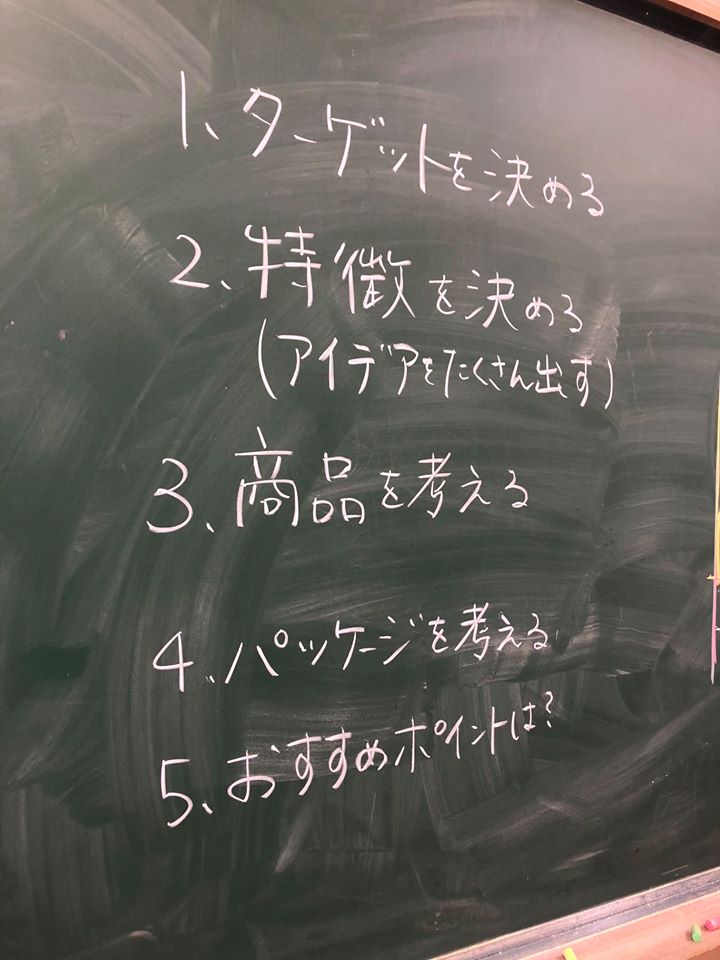 1、ターゲットを決める
2、特徴を決める
(アイデアをたくさん出す)
3、商品を考える
4、パッケージを考える
5、おすすめポイントは?